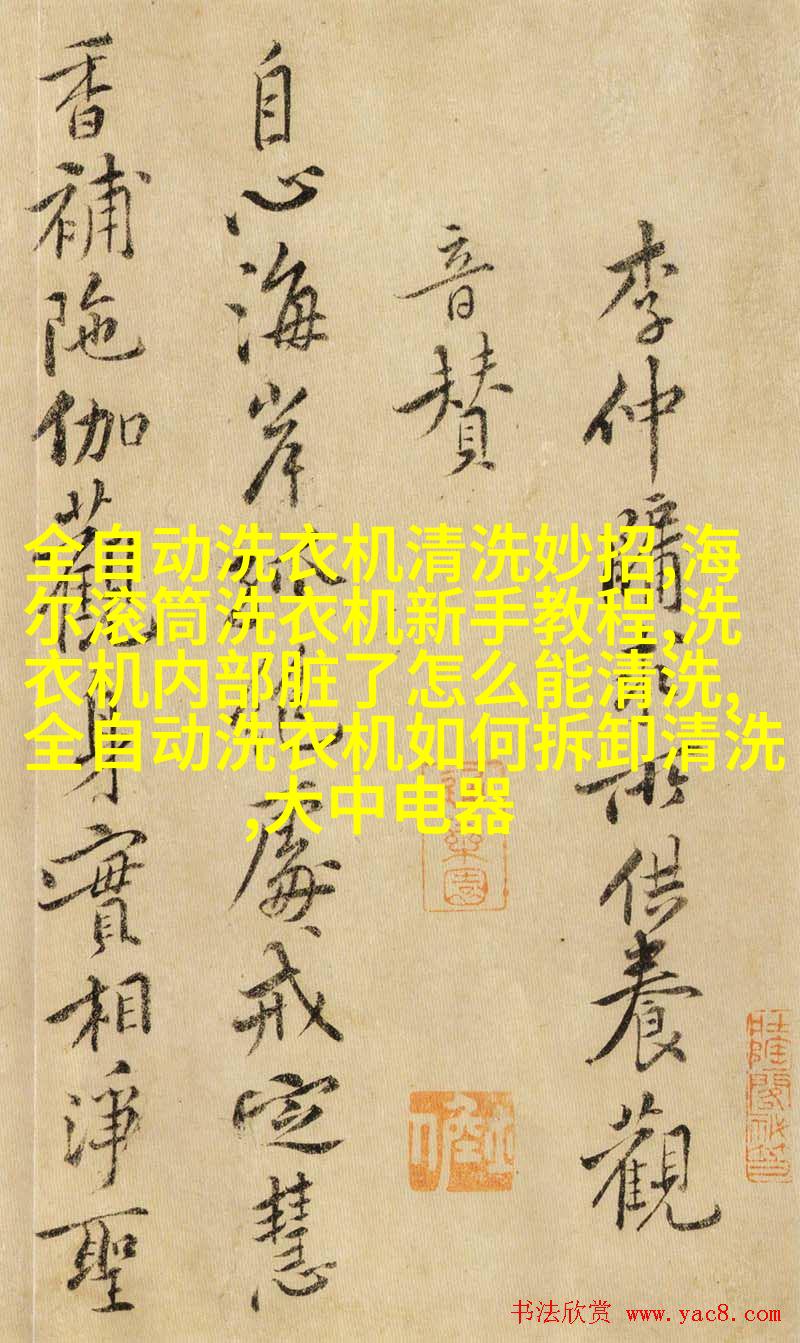 李仲牖□□供養觀
音贊
自心海岸孤絶處戒定慧
香補陁伽蓝觀身實相淨聖
全自动洗衣机清洗妙招,海
尔滚筒洗衣机新手教程,洗
衣机内部脏了怎么能清洗,
全自动洗衣机如何拆卸清洗
,大中电器
书法欣赏 www.yac8.com